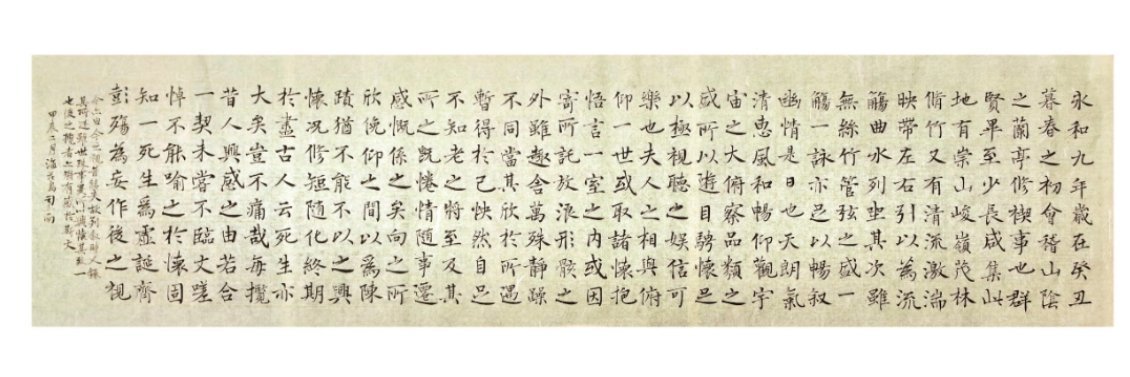 永和九年歲在癸丑
暮春之初會稽山陰
之蘭亭修禊事也群
賢畢至少長咸集此
地有崇山峻嶺茂林
脩竹又有清流激湍
映帶左右引以為流
觴曲水列坐其次雖
無絲竹管弦之盛一
觴一詠亦足以暢敘
幽情是日也天朗氣
清惠風和暢仰觀宇
宙之大俯察品類之
盛所以遊目騁懷足
以極視聽之娛信可
樂也夫人之相與俯
仰一世或取諸懷抱
悟言一室之內或因
寄所託放浪形骸之
外雖趣舍萬殊靜躁
不同當其欣於所遇
暫得於己怏然自足
不知老之將至及其
所之既惓情隨事遷
感慨係之矣向之所
欣俛仰之間以為陳
蹟猶不能不以之興
懷況修短隨化終期
於盡古人云死生亦
大矣豈不痛哉每攬
昔人興感之由若合
一契未嘗不臨文嗟
悼不能喻之於懷固
知一死生為虛誕齊
彭殤為妄作後之視
今亦由今之視昔悲夫故列敘時人錄
其所述雖世殊事異所以興懷其致一
也後之攬者亦將有感於斯文
甲辰二月